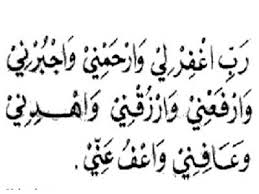 رَبِّ اغْفِرْ لِيْ وَارْحَمْنِيْ وَاجْبُرْنِيْ
وَارْفَعْنِيْ وَارْزُقْنِيْ وَاهْدِنِيْ
وَعَافِنِيْ وَاعْفُ عَنِّيْ.